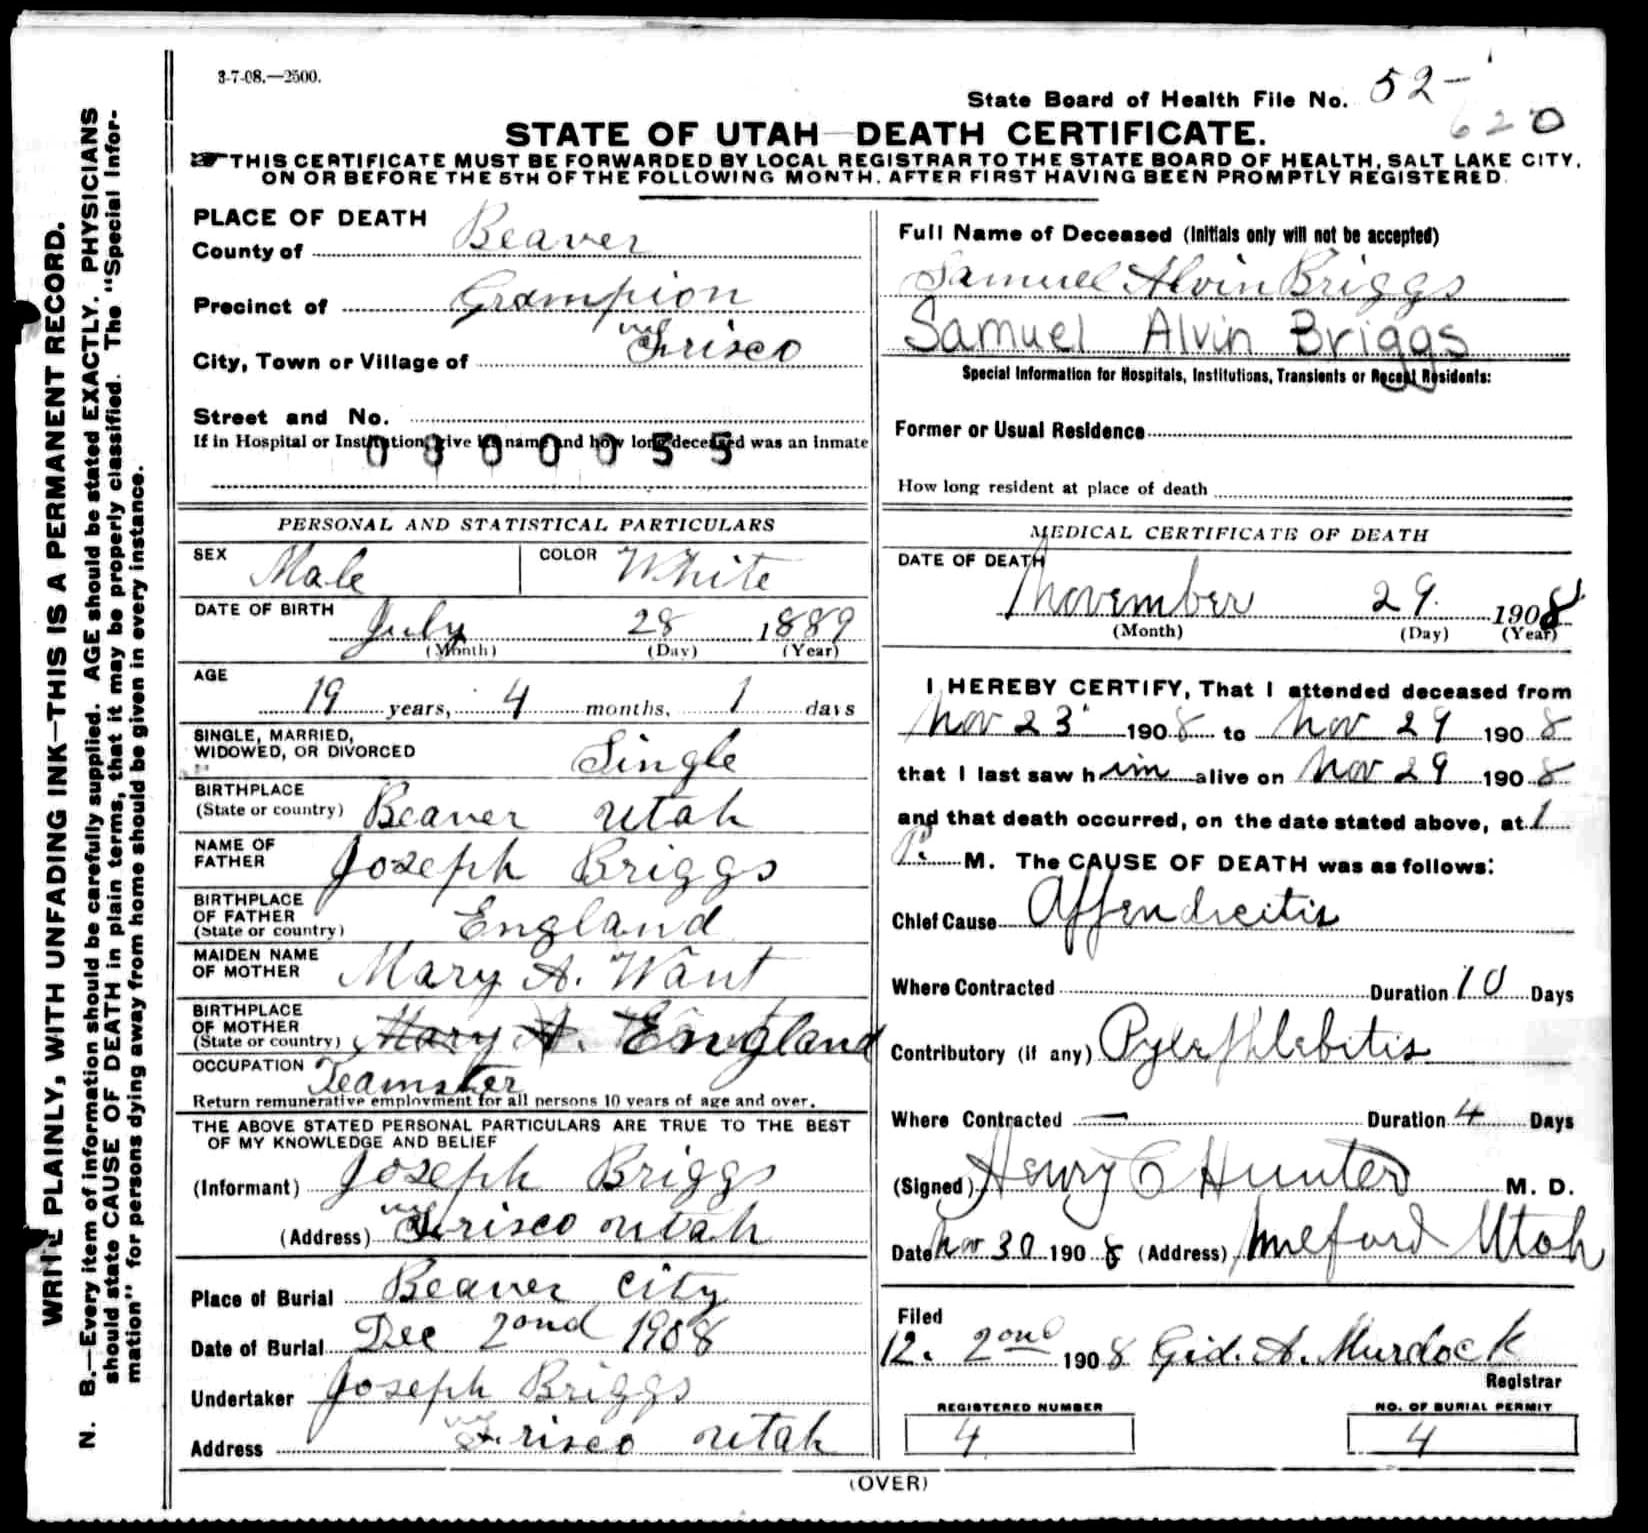 3-7-08.—2500.
State Board of Health File No. 52-
620
STATE OF UTAH—DEATH CERTIFICATE.
THIS CERTIFICATE MUST BE FORWARDED BY LOCAL REGISTRAR TO THE STATE BOARD OF HEALTH, SALT LAKE CITY,
ON OR BEFORE THE 5TH OF THE FOLLOWING MONTH, AFTER FIRST HAVING BEEN PROMPTLY REGISTERED.
WRITE PLAINLY, WITH UNFADING INK—THIS IS A PERMANENT RECORD.
N. B.—Every item of information should be carefully supplied. AGE should be stated EXACTLY. PHYSICIANS
should state CAUSE OF DEATH in plain terms, that it may be properly classified. The "Special Infor-
mation" for persons dying away from home should be given in every instance.
PLACE OF DEATH
County of Beaver
Precinct of Grampion
City, Town or Village of Frisco
Street and No.
If in Hospital or Institution, give its name and how long deceased was an inmate
0300055
PERSONAL AND STATISTICAL PARTICULARS
SEX Male COLOR White
DATE OF BIRTH July 28 1889
(Month) (Day) (Year)
AGE
19 years, 4 months, 1 days
SINGLE, MARRIED,
WIDOWED, OR DIVORCED Single
BIRTHPLACE
(State or country) Beaver Utah
NAME OF
FATHER Joseph Briggs
BIRTHPLACE
OF FATHER
(State or country) England
MAIDEN NAME
OF MOTHER Mary A. Want
BIRTHPLACE
OF MOTHER
(State or country) Mary A. England
OCCUPATION Teamster
Return remunerative employment for all persons 10 years of age and over.
THE ABOVE STATED PERSONAL PARTICULARS ARE TRUE TO THE BEST
OF MY KNOWLEDGE AND BELIEF
(Informant) Joseph Briggs
(Address) Frisco Utah
Place of Burial Beaver City
Date of Burial Dec 2ond 1908
Undertaker Joseph Briggs
Address Frisco Utah
Full Name of Deceased (Initials only will not be accepted)
Samuel Alvin Briggs
Samuel Alvin Briggs
Special Information for Hospitals, Institutions, Transients or Recent Residents:
Former or Usual Residence
How long resident at place of death
MEDICAL CERTIFICATE OF DEATH
DATE OF DEATH
November 29. 1908
(Month) (Day) (Year)
I HEREBY CERTIFY, That I attended deceased from
Nov 23 1908 to Nov 29 1908
that I last saw him alive on Nov 29 1908
and that death occurred, on the date stated above, at 1
P. M. The CAUSE OF DEATH was as follows:
Chief Cause Appendicitis
Where Contracted Duration 10 Days
Contributory (if any) Pylephlebitis
Where Contracted — Duration 4 Days
(Signed) Henry C Hunter M. D.
Date Nov 30 1908 (Address) Milford Utah
Filed
12. 2ond 1908 Gid. A. Murdock
Registrar
REGISTERED NUMBER
4
NO. OF BURIAL PERMIT
4
(OVER)